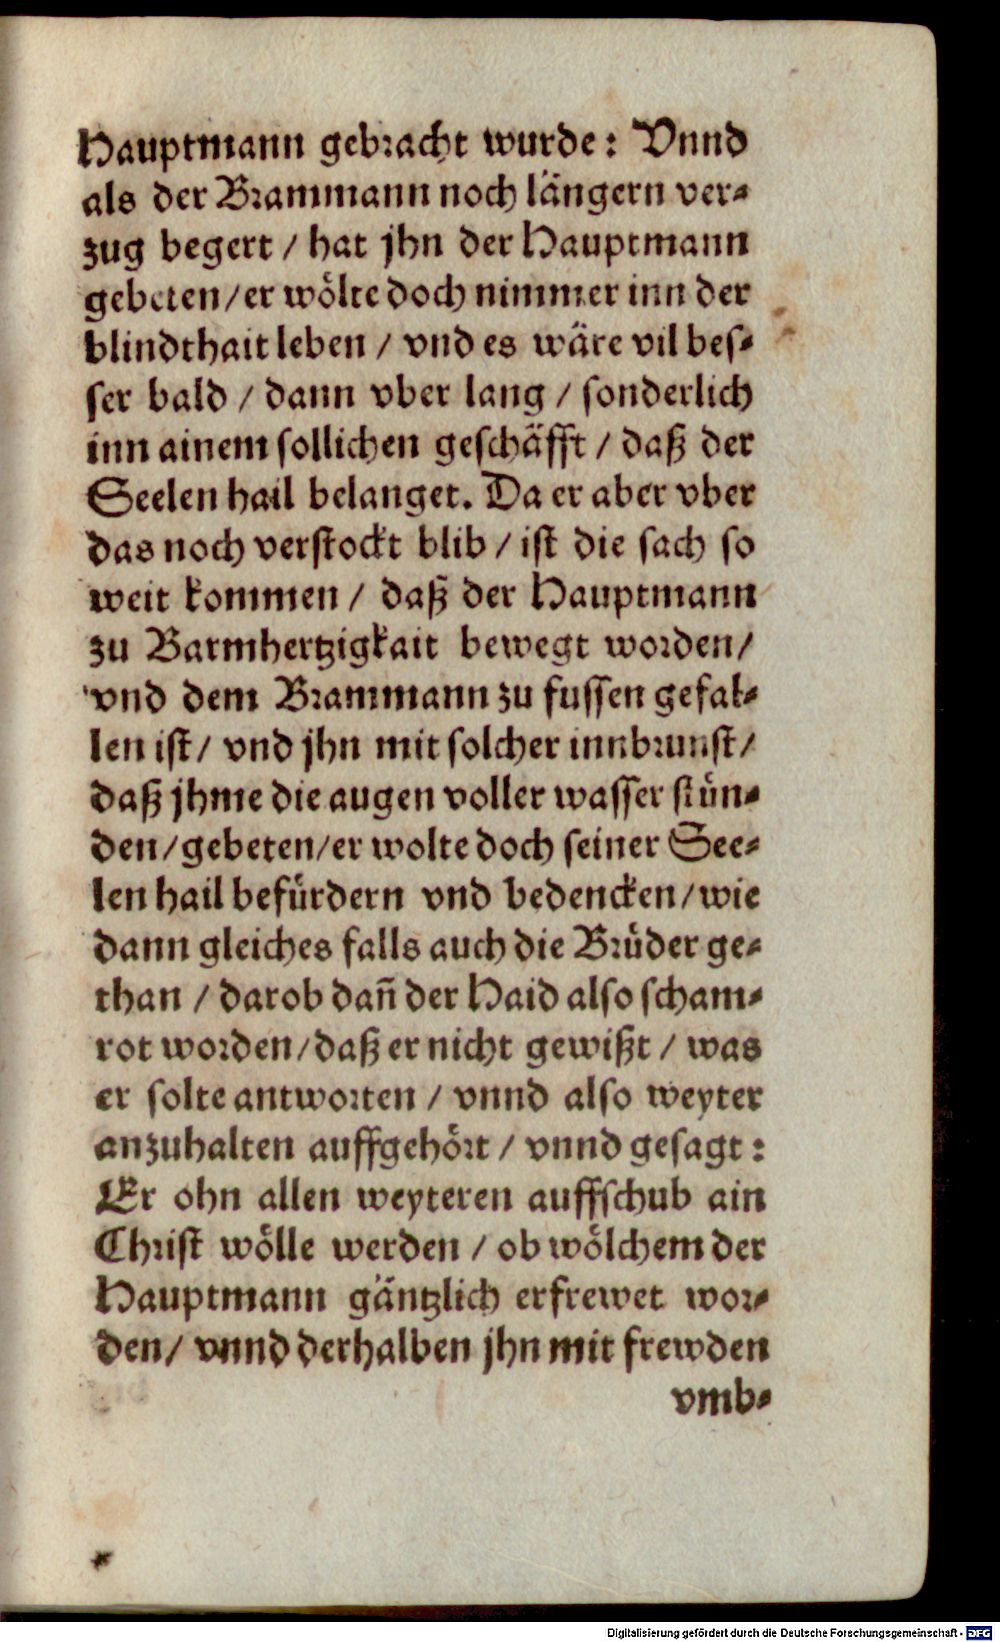 Hauptmann gebracht wurde: Vnnd
als der Brammann noch längern ver-
zug begert / hat jhn der Hauptmann
gebeten / er wölte doch nimmer inn der
blindthait leben / vnd es wäre vil bes-
ser bald / dann vber lang / sonderlich
inn ainem sollichen geschäfft / daß der
Seelen hail belanget. Da er aber vber
das noch verstockt blib / ist die sach so
weit kommen / daß der Hauptmann
zu Barmhertzigkait bewegt worden /
vnd dem Brammann zu fussen gefal-
len ist / vnd jhn mit solcher innbrunst /
daß jhme die augen voller wasser stün-
den / gebeten / er wolte doch seiner See-
len hail befürdern vnd bedencken / wie
dann gleiches falls auch die Brüder ge-
than / darob dañ der Haid also scham-
rot worden / daß er nicht gewißt / was
er solte antworten / vnnd also weyter
anzuhalten auffgehört / vnnd gesagt:
Er ohn allen weyteren auffschub ain
Christ wölle werden / ob wölchem der
Hauptmann gäntzlich erfrewet wor-
den / vnnd derhalben jhn mit frewden
vmb-
Digitalisierung gefördert durch die Deutsche Forschungsgemeinschaft - DFG